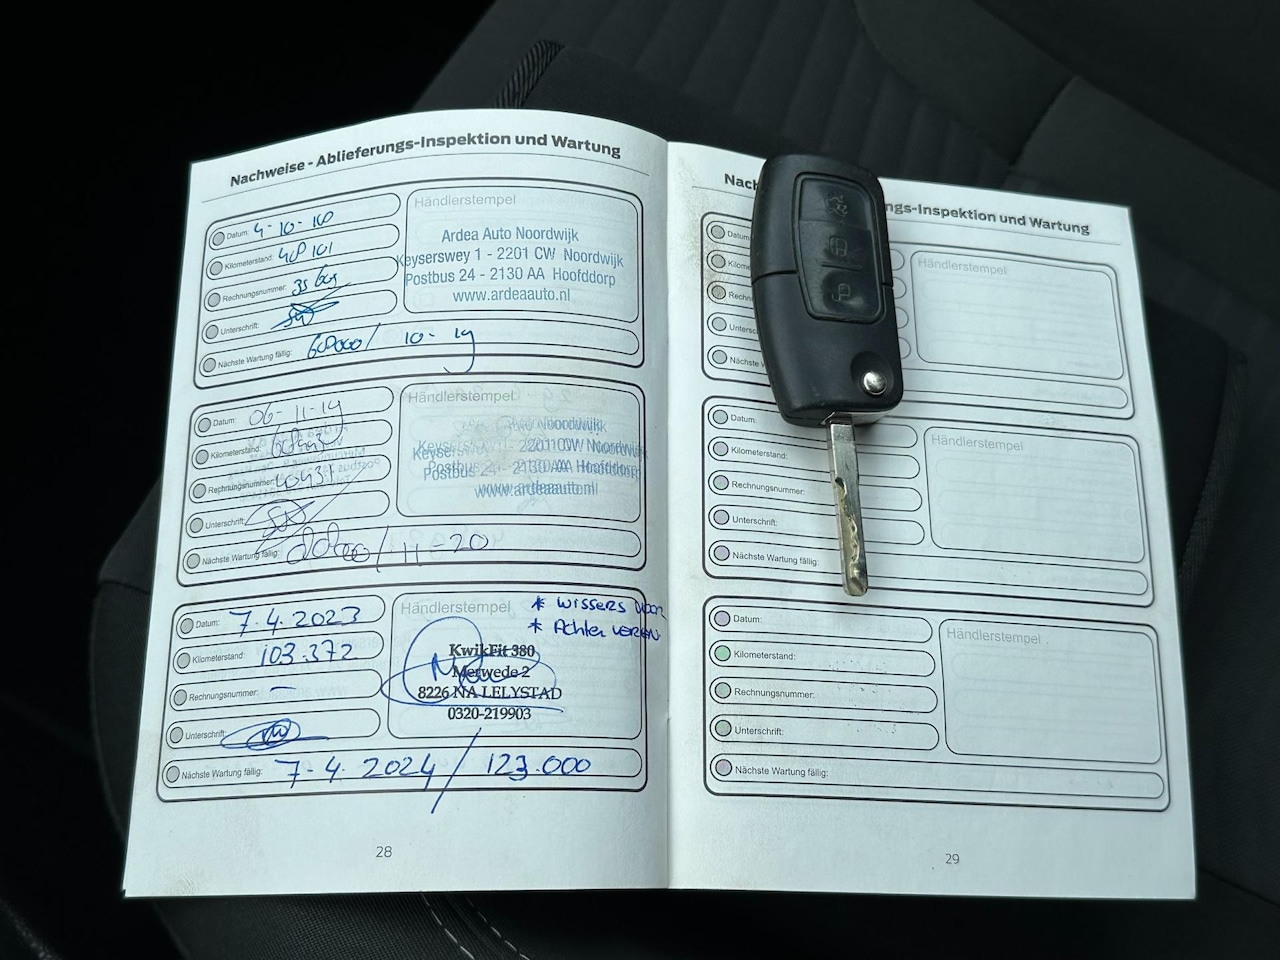 Nachweise - Ablieferungs-Inspektion und Wartung
Datum: 4-10-18
Kilometerstand: 48101
Rechnungsnummer:
Unterschrift:
Nächste Wartung fällig: 10-19
Händlerstempel
Ardea Auto Noordwijk
Keyserswey 1 - 2201 CW Noordwijk
Postbus 24 - 2130 AA Hoofddorp
www.ardeaauto.nl
Datum: 06-11-19
Kilometerstand:
Rechnungsnummer:
Unterschrift:
Nächste Wartung fällig: /11-20
Händlerstempel
Noordwijk
2201 CW Noordwijk
Postbus 24 - 2130 AA Hoofddorp
www.ardeaauto.nl
Datum: 7.4.2023
Kilometerstand: 103.372
Rechnungsnummer: —
Unterschrift:
Nächste Wartung fällig: 7-4.2024/123.000
Händlerstempel
* wissers voor
* Achter
KwikFit 380
Merwede 2
8226 NA LELYSTAD
0320-219903
28
ngs-Inspektion und Wartung
Händlerstempel
Datum:
Kilometerstand:
Rechnungsnummer:
Unterschrift:
Nächste Wartung fällig:
Händlerstempel
Datum:
Kilometerstand:
Rechnungsnummer:
Unterschrift:
Nächste Wartung fällig:
Händlerstempel
29